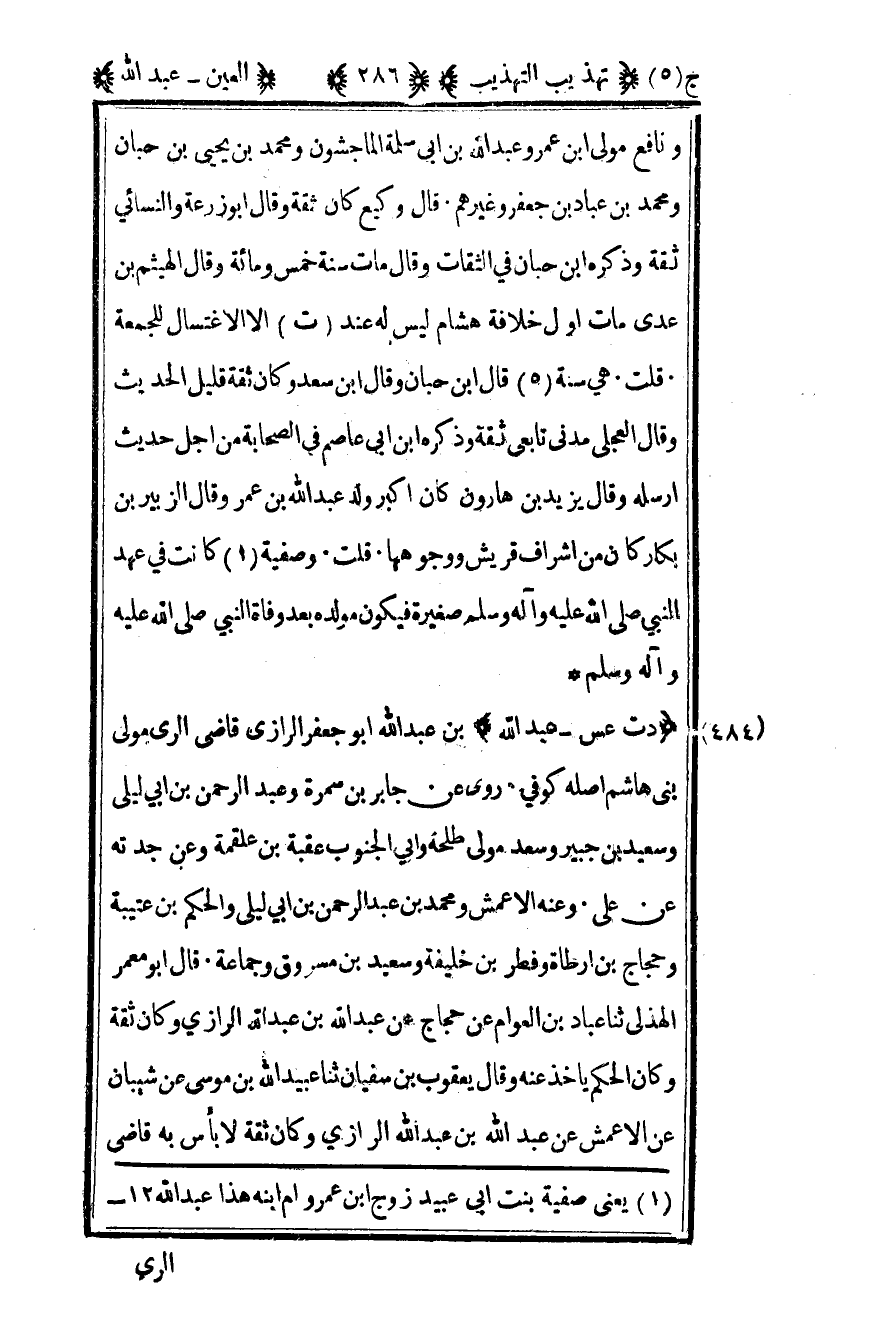 ج (٥) ﴿ تهذيب التهذيب ﴾ ﴿ ٢٨٦ ﴾ ﴿ العين ـ عبد الله ﴾
و نافع مولى ابن عمر و عبد الله بن ابى سلمة الماجشون و محمد بن يحيى بن حبان
ومحمد بن عباد بن جعفر وغيرهم · قال وكيع كان ثقة وقال ابو زرعة والنسائي
ثقة وذكره ابن حبان في الثقات وقال مات سنة خمس ومائة وقال الهيثم بن
عدى مات اول خلافة هشام ليس له عند ( ت ) الا الاغتسال للجمعة
· قلت · هي سنة (٥) قال ابن حبان وقال ابن سعد وكان ثقة قليل الحديث
وقال العجلى مدنى تابعى ثقة وذكره ابن ابى عاصم في الصحابة من اجل حديث
ارسله وقال يزيد بن هارون كان اكبر ولد عبد الله بن عمر وقال الزبير بن
بكار كان من اشراف قريش ووجوهها · قلت · وصفية (١) كانت في عهد
النبي صلى الله عليه وآله وسلم صغيرة فيكون مولده بعد وفاة النبي صلى الله عليه
وآله وسلم *
(٤٨٤) ﴿ دت عس ـ عبد الله ﴾ بن عبد الله ابو جعفر الرازى قاضى الرى مولى
بنى هاشم اصله كوفي · روى عن جابر بن سمرة وعبد الرحمن بن ابي ليلى
وسعيد بن جبير وسعد مولى طلحة وابي الجنوب عقبة بن علقمة وعن جدته
عن على · وعنه الاعمش ومحمد بن عبد الرحمن بن ابي ليلى والحكم بن عتيبة
وحجاج بن ارطاة وفطر بن خليفة وسعيد بن مسروق وجماعة · قال ابو معمر
الهذلى ثنا عباد بن العوام عن حجاج عن عبد الله بن عبد الله الرازي وكان ثقة
وكان الحكم ياخذ عنه وقال يعقوب بن سفيان ثنا عبيد الله بن موسى عن شيبان
عن الاعمش عن عبد الله بن عبد الله الرازي وكان ثقة لا بأس به قاضى
(١) يعنى صفية بنت ابي عبيد زوج ابن عمر و ام ابنه هذا عبد الله ١٢ ـ
الري